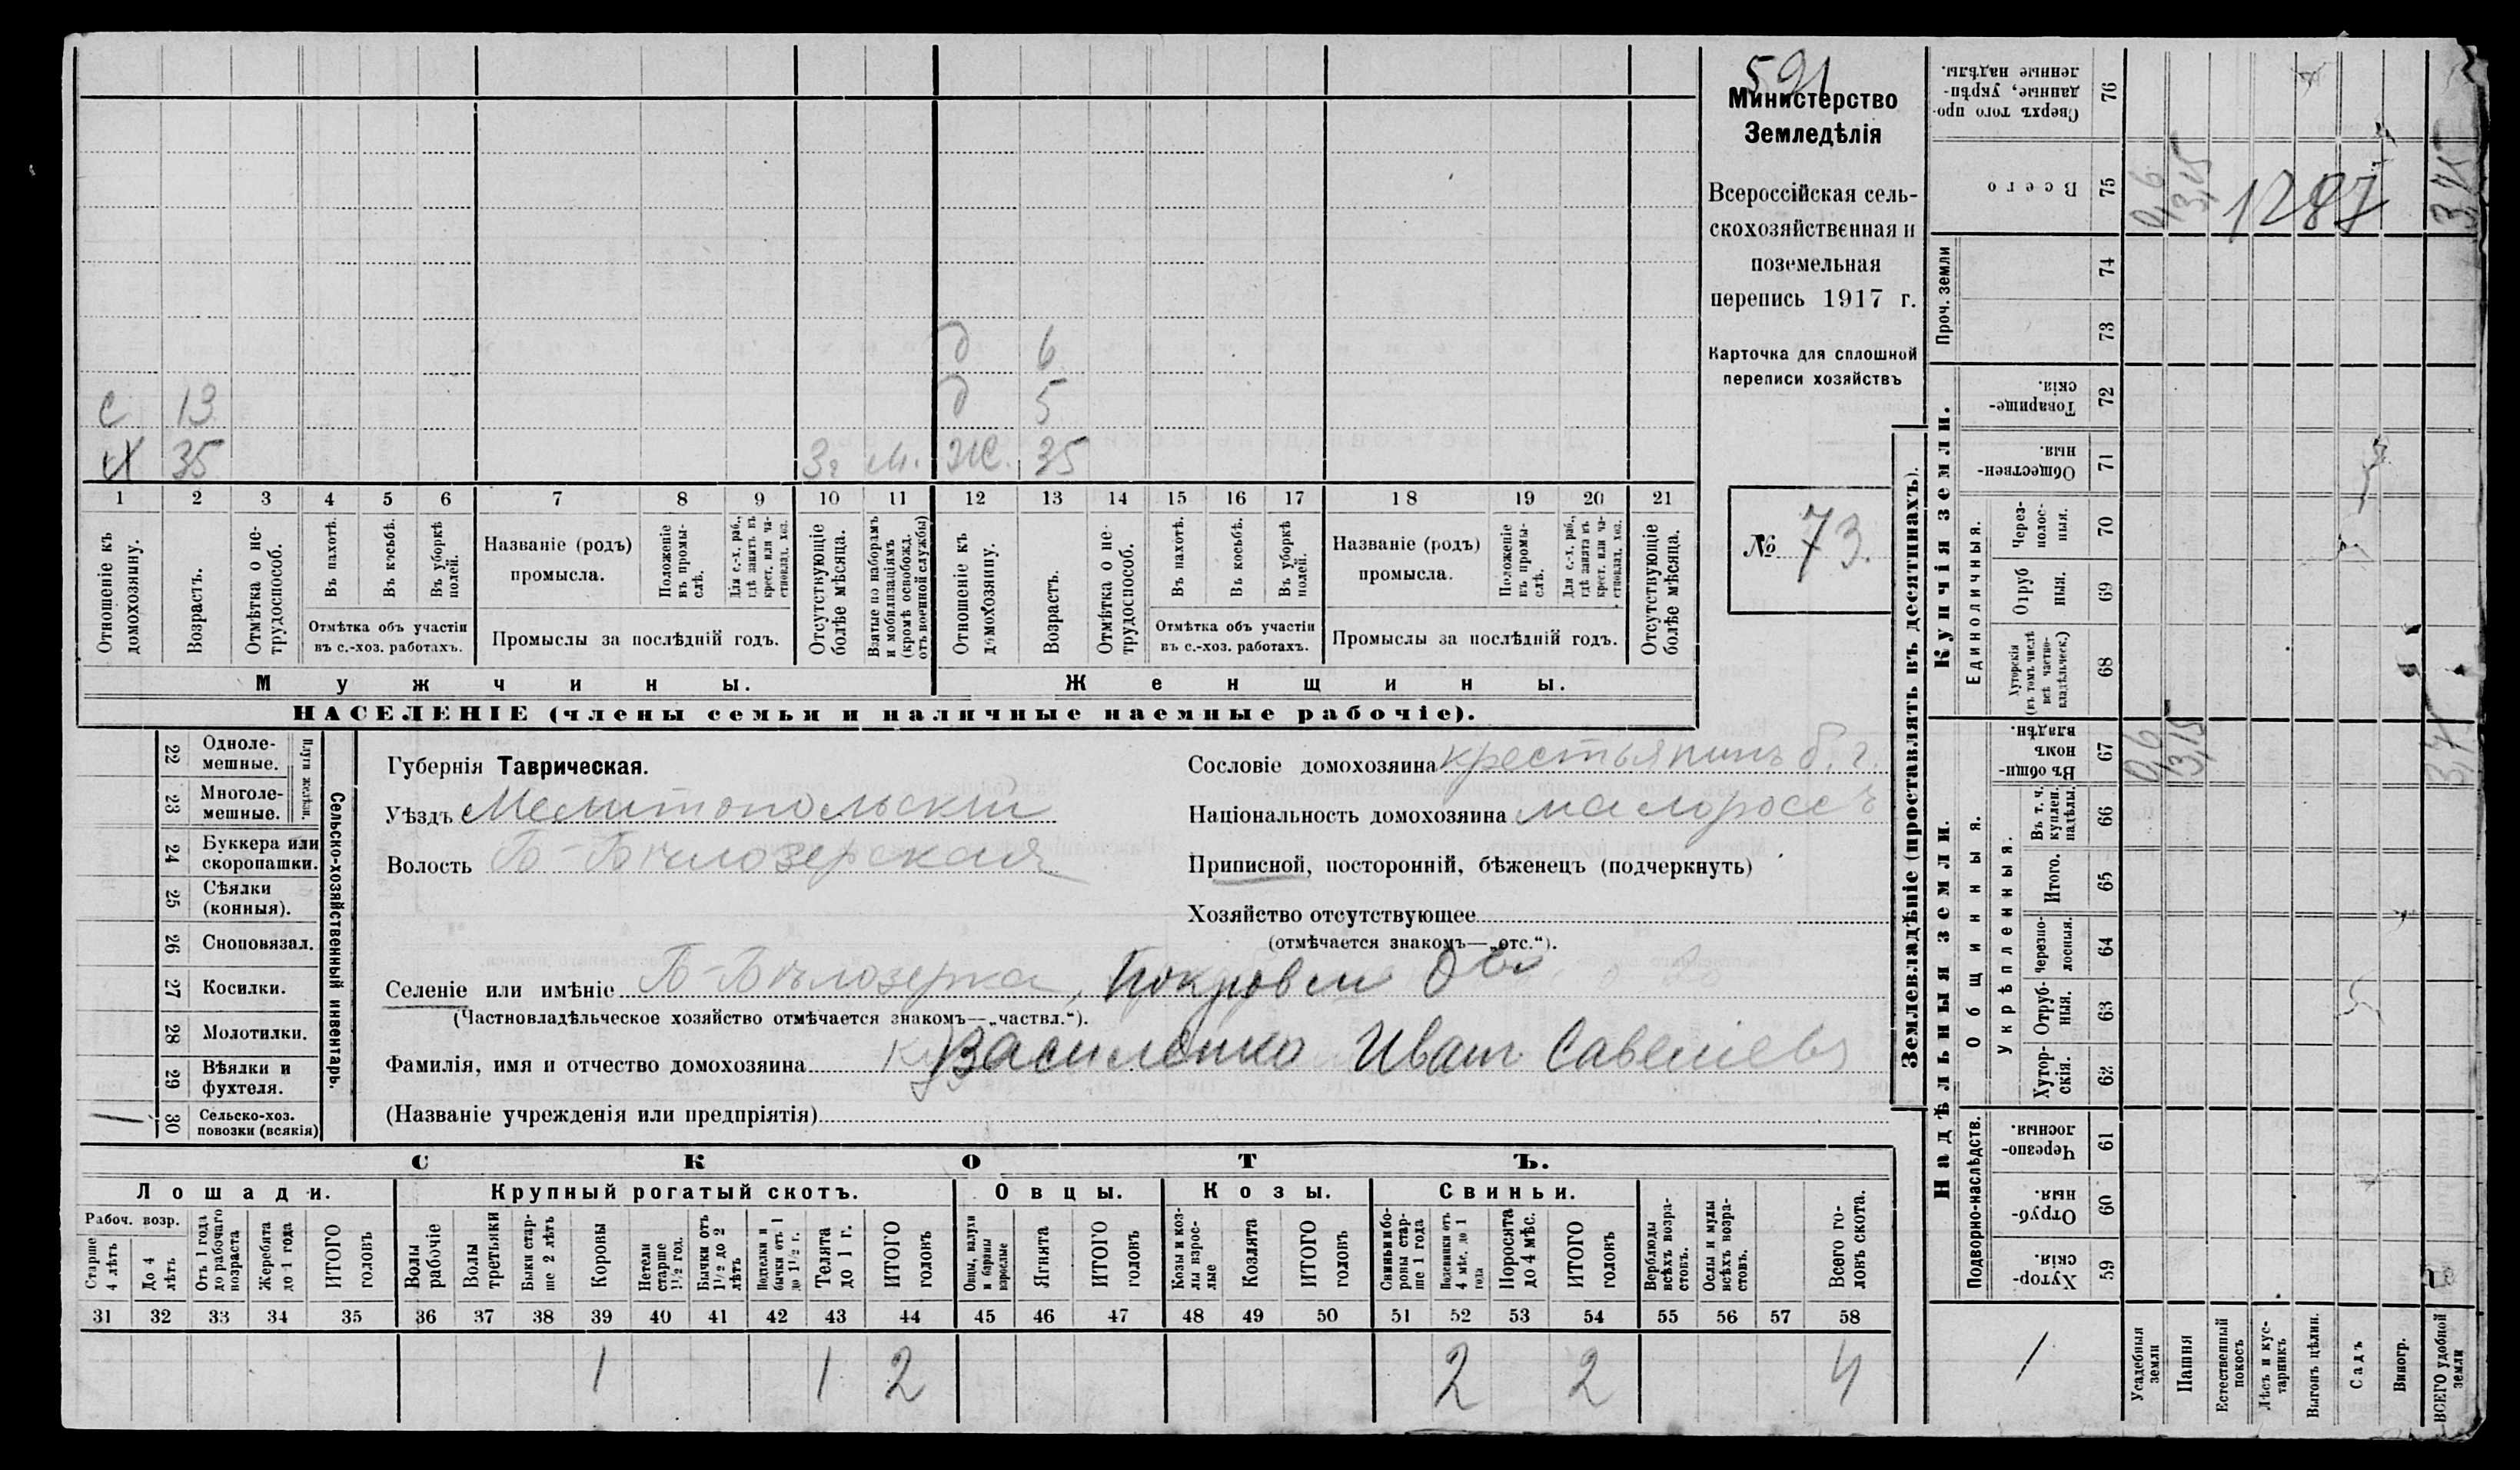 591
Министерство
Земледѣлія
Всероссійская сель-
скохозяйственная и
поземельная
перепись 1917 г.
Карточка для сплошной
переписи хозяйствъ
№ 73.
д 6
с 13 д 5
х 35 3г м. ж. 35
1 2 3 4 5 6 7 8 9 10 11 12 13 14 15 16 17 18 19 20 21
Отношеніе къ домохозяину.
Возрастъ.
Отмѣтка о не-трудоспособ.
Въ пахотѣ.
Въ косьбѣ.
Въ уборкѣ полей.
Отмѣтка объ участіи
въ с.-хоз. работахъ.
Названіе (родъ)
промысла.
Положеніе въ промы-слѣ.
Для с.-х. раб., гдѣ занятъ въ крест. или ча-стновлад. хоз.
Промыслы за послѣдній годъ.
Отсутствующіе болѣе мѣсяца.
Взятые по наборамъ и мобилизаціямъ (кромѣ освобожд. отъ военной службы)
Отношеніе къ домохозяину.
Возрастъ.
Отмѣтка о не-трудоспособ.
Въ пахотѣ.
Въ косьбѣ.
Въ уборкѣ полей.
Отмѣтка объ участіи
въ с.-хоз. работахъ.
Названіе (родъ)
промысла.
Положеніе въ промы-слѣ.
Для с.-х. раб., гдѣ занята въ крест. или ча-стновлад. хоз.
Промыслы за послѣдній годъ.
Отсутствующіе болѣе мѣсяца.
Мужчины. Женщины.
НАСЕЛЕНІЕ (члены семьи и наличные наемные рабочіе).
Сельско-хозяйственный инвентарь.
Плуги желѣзн.
22 Одноле-
мешные.
23 Многоле-
мешные.
24 Буккера или
скоропашки.
25 Сѣялки
(конныя).
26 Сноповязал.
27 Косилки.
28 Молотилки.
29 Вѣялки и
фухтеля.
1 30 Сельско-хоз.
повозки (всякія)
Губернія Таврическая.
Уѣздъ Мелитопольскій
Волость Б-Бѣлозерская
Сословіе домохозяина крестьянинъ б. г.
Національность домохозяина малороссъ
Приписной, посторонній, бѣженецъ (подчеркнуть)
Хозяйство отсутствующее
(отмѣчается знакомъ—„отс.“).
Селеніе или имѣніе Б-Бѣлозерка,
(Частновладѣльческое хозяйство отмѣчается знакомъ—„частвл.“).
Фамилія, имя и отчество домохозяина Василенко Иван Савеліевъ
(Названіе учрежденія или предпріятія)
СКОТЪ.
Лошади. Крупный рогатый скотъ. Овцы. Козы. Свиньи.
Рабоч. возр.
Старше 4 лѣтъ
До 4 лѣтъ
Отъ 1 года до рабочаго возраста
Жеребята до 1 года
ИТОГО головъ
Волы рабочіе
Волы третьяки
Быки стар-ше 2 лѣтъ
Коровы
Нетели старше 1½ год.
Бычки отъ 1½ до 2 лѣтъ
Подтелки и бычки отъ 1 до 1½ г.
Телята до 1 г.
ИТОГО головъ
Овцы, валухи и бараны взрослые
Ягнята
ИТОГО головъ
Козы и коз-лы взрос-лые
Козлята
ИТОГО головъ
Свиньи и бо-ровы стар-ше 1 года
Подсвинки отъ 4 мѣс. до 1 года
Поросята до 4 мѣс.
ИТОГО головъ
Верблюды всѣхъ возра-стовъ.
Ослы и мулы всѣхъ возра-стовъ.
Всего го-ловъ скота.
31 32 33 34 35 36 37 38 39 40 41 42 43 44 45 46 47 48 49 50 51 52 53 54 55 56 57 58
1 1 2 2 2 4
Землевладѣніе (проставлять въ десятинахъ).
Надѣльныя земли. Купчія земли. Проч. земли
Подворно-наслѣдств. Общинныя. Укрѣпленныя. Единоличныя.
Сверхъ того про-данные, укрѣп-ленные надѣлы. 76
Всего 75 0,6 3,15 3,75
1287
74
73
Товарище-скія. 72
Обществен-ныя. 71
Через-полос-ныя. 70
Отруб-ныя. 69
Хуторскія (въ томъ числѣ всѣ частно-владѣльческ.) 68
Въ общин-номъ владѣн. 67 0,6 3,15 3,75
Въ т. ч. куплен. надѣлы. 66
Итого. 65
Черезпо-лосныя. 64
Отруб-ныя. 63
Хутор-скія. 62
Черезпо-лосныя. 61
Отруб-ныя. 60
Хутор-скія. 59
1
Усадебныя земли
Пашня
Естественный покосъ
Лѣсъ и кус-тарникъ
Выгонъ цѣлин.
Садъ
Виногр.
ВСЕГО удобной земли